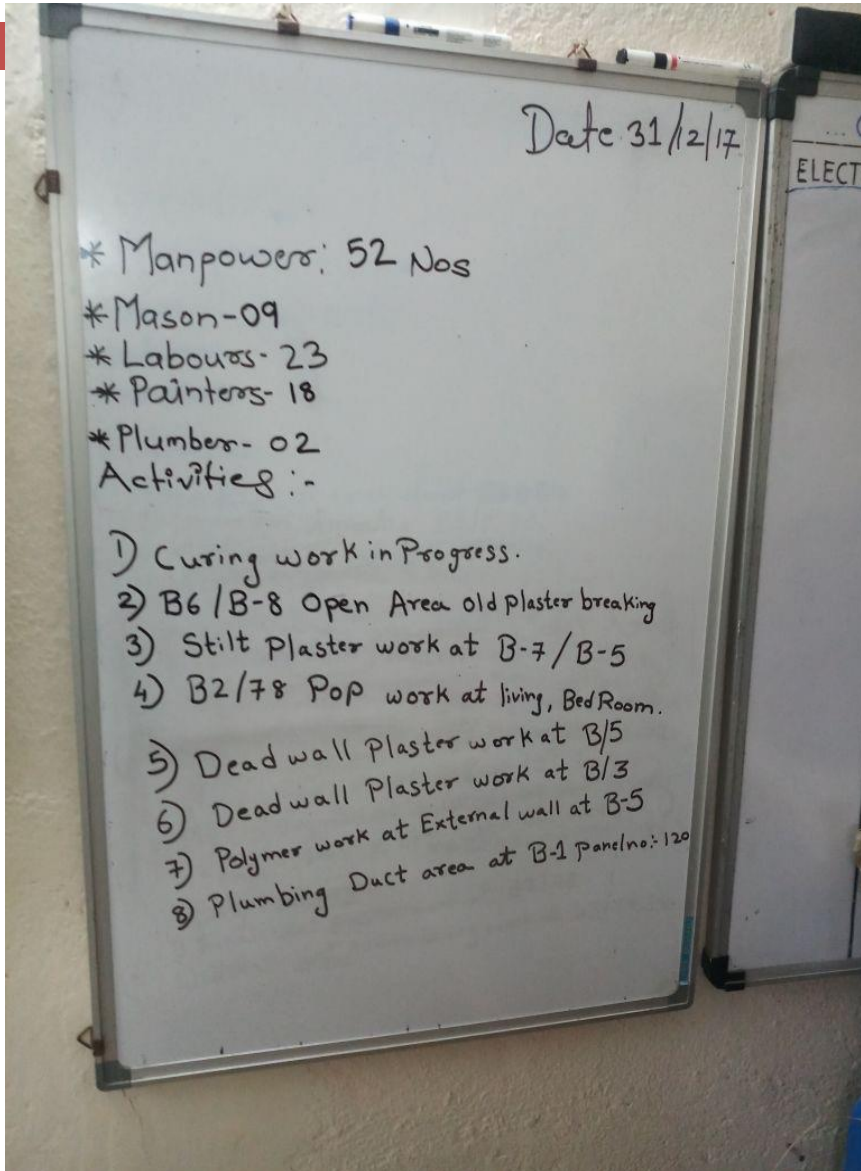 Date 31/12/17
* Manpower: 52 Nos
* Mason-09
* Labours- 23
* Painters- 18
* Plumber- 02
Activities :-
1) Curing work in Progress.
2) B6/B-8 Open Area old plaster breaking
3) Stilt Plaster work at B-7/B-5
4) B2/78 Pop work at living, Bed Room.
5) Dead wall Plaster work at B/5
6) Dead wall Plaster work at B/3
7) Polymer work at External wall at B-5
8) Plumbing Duct area at B-1 Panel no:- 120
... 
ELECT